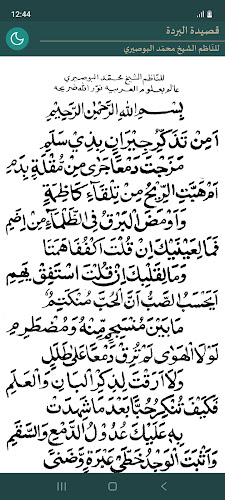 12:44
قصيدة البردة
للناظم الشيخ محمد البوصيري
للناظم الشيخ محمد البوصيري
عالم بعلوم العربية نور الله ضريحه
بِسْمِ اللهِ الرَّحْمٰنِ الرَّحِيْمِ
اَمِنْ تَذَكُّرِ جِيْرَانٍ بِذِيْ سَلَمِ
مَزَجْتَ دَمْعًا جَرٰى مِنْ مُقْلَةٍ بِدَمِ
اَمْ هَبَّتِ الرِّيْحُ مِنْ تِلْقَاءِ كَاظِمَةٍ
وَاَوْمَضَ الْبَرْقُ فِى الظَّلْمَاءِ مِنْ اِضَمِ
فَمَا لِعَيْنَيْكَ اِنْ قُلْتَ اكْفُفَا هَمَتَا
وَمَا لِقَلْبِكَ اِنْ قُلْتَ اسْتَفِقْ يَهِمِ
اَيَحْسَبُ الصَّبُّ اَنَّ الْحُبَّ مُنْكَتِمٌ
مَا بَيْنَ مُنْسَجِمٍ مِنْهُ وَمُضْطَرِمِ
لَوْلَا الْهَوٰى لَمْ تُرِقْ دَمْعًا عَلٰى طَلَلٍ
وَلَا اَرِقْتَ لِذِكْرِ الْبَانِ وَالْعَلَمِ
فَكَيْفَ تُنْكِرُ حُبًّا بَعْدَ مَا شَهِدَتْ
بِهِ عَلَيْكَ عُدُوْلُ الدَّمْعِ وَالسَّقَمِ
وَاَثْبَتَ الْوَجْدُ خَطَّيْ عَبْرَةٍ وَضَنًى